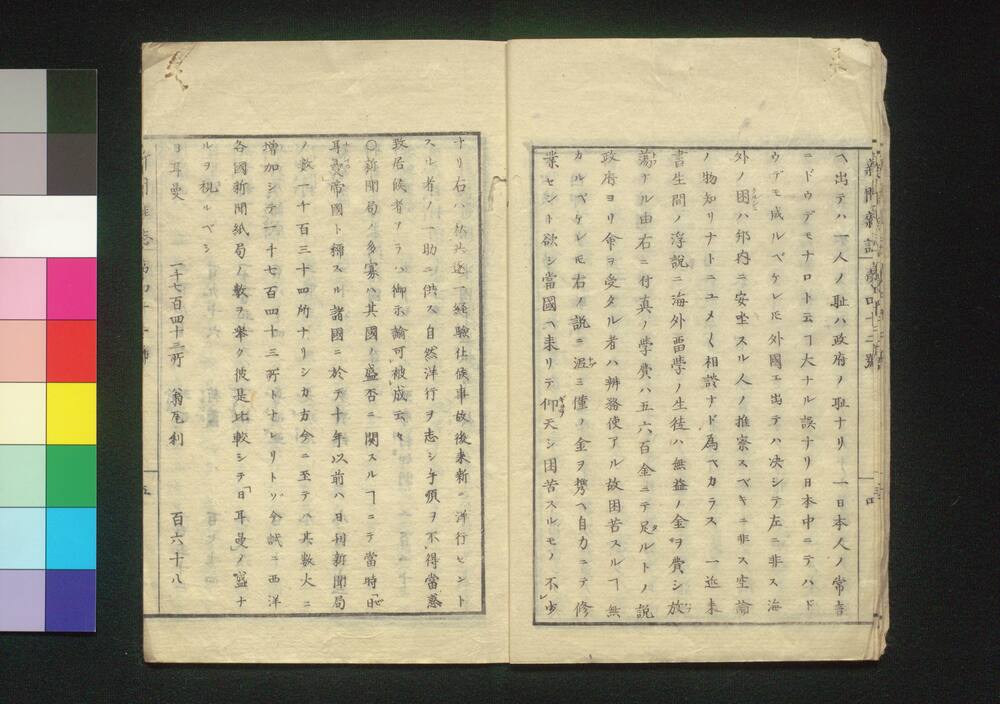 ヘ出テハ一人ノ耻ハ政府ノ耻ナリ 一日本人ノ常言
ニドウデモナロト云フ大ナル誤ナリ日本中ニテハド
ウデモ成ルベケレ𪜈外國エ出テハ决シテ左ニ非ス海
外ノ困ハ邦内ニ安坐スル人ノ推察スベキニ非ス空論
ノ物知リナトニユメ〱相談ナド為ベカラス 一近来
書生間ノ浮説ニ海外畱學ノ生徒ハ無益ノ金ヲ費シ放
蕩ケル由右ニ付真ノ學費ハ五六百金ニテ足ルトノ説
政府ヨリ命ヲ受タル者ハ辨務使アル故困苦スルヿ無
カルベケレ𪜈右ノ説ニ泥ミ僅ノ金ヲ携ヘ自力ニテ修
業セント欲シ當國ヘ来リテ仰天シ困苦スルモノ不少
ナリ右ハ 経驗仕候事故後来新ニ洋行セント
スル者ノ一助ニ供ス自然洋行ヲ志シ手順ヲ不得當惑
致居候者アラハ御示諭可被成云々
○新聞局ノ多寡ハ其國ノ盛否ニ関スルヿニテ當時日
耳曼帝國ト稱スル諸國ニ於テ十年以前ハ日刊新聞局
ノ数一千百三十四所ナリシカ方今ニ至テハ其数大ニ
増加シテ一千七百四十三所トナレリトソ今試ニ西洋
各國新聞紙局ノ数ヲ舉ク彼是比較シテ日耳曼ノ盛ナ
ルヲ視ルベシ
日耳曼 一千七百四十三所 翁瓦利 百六十八